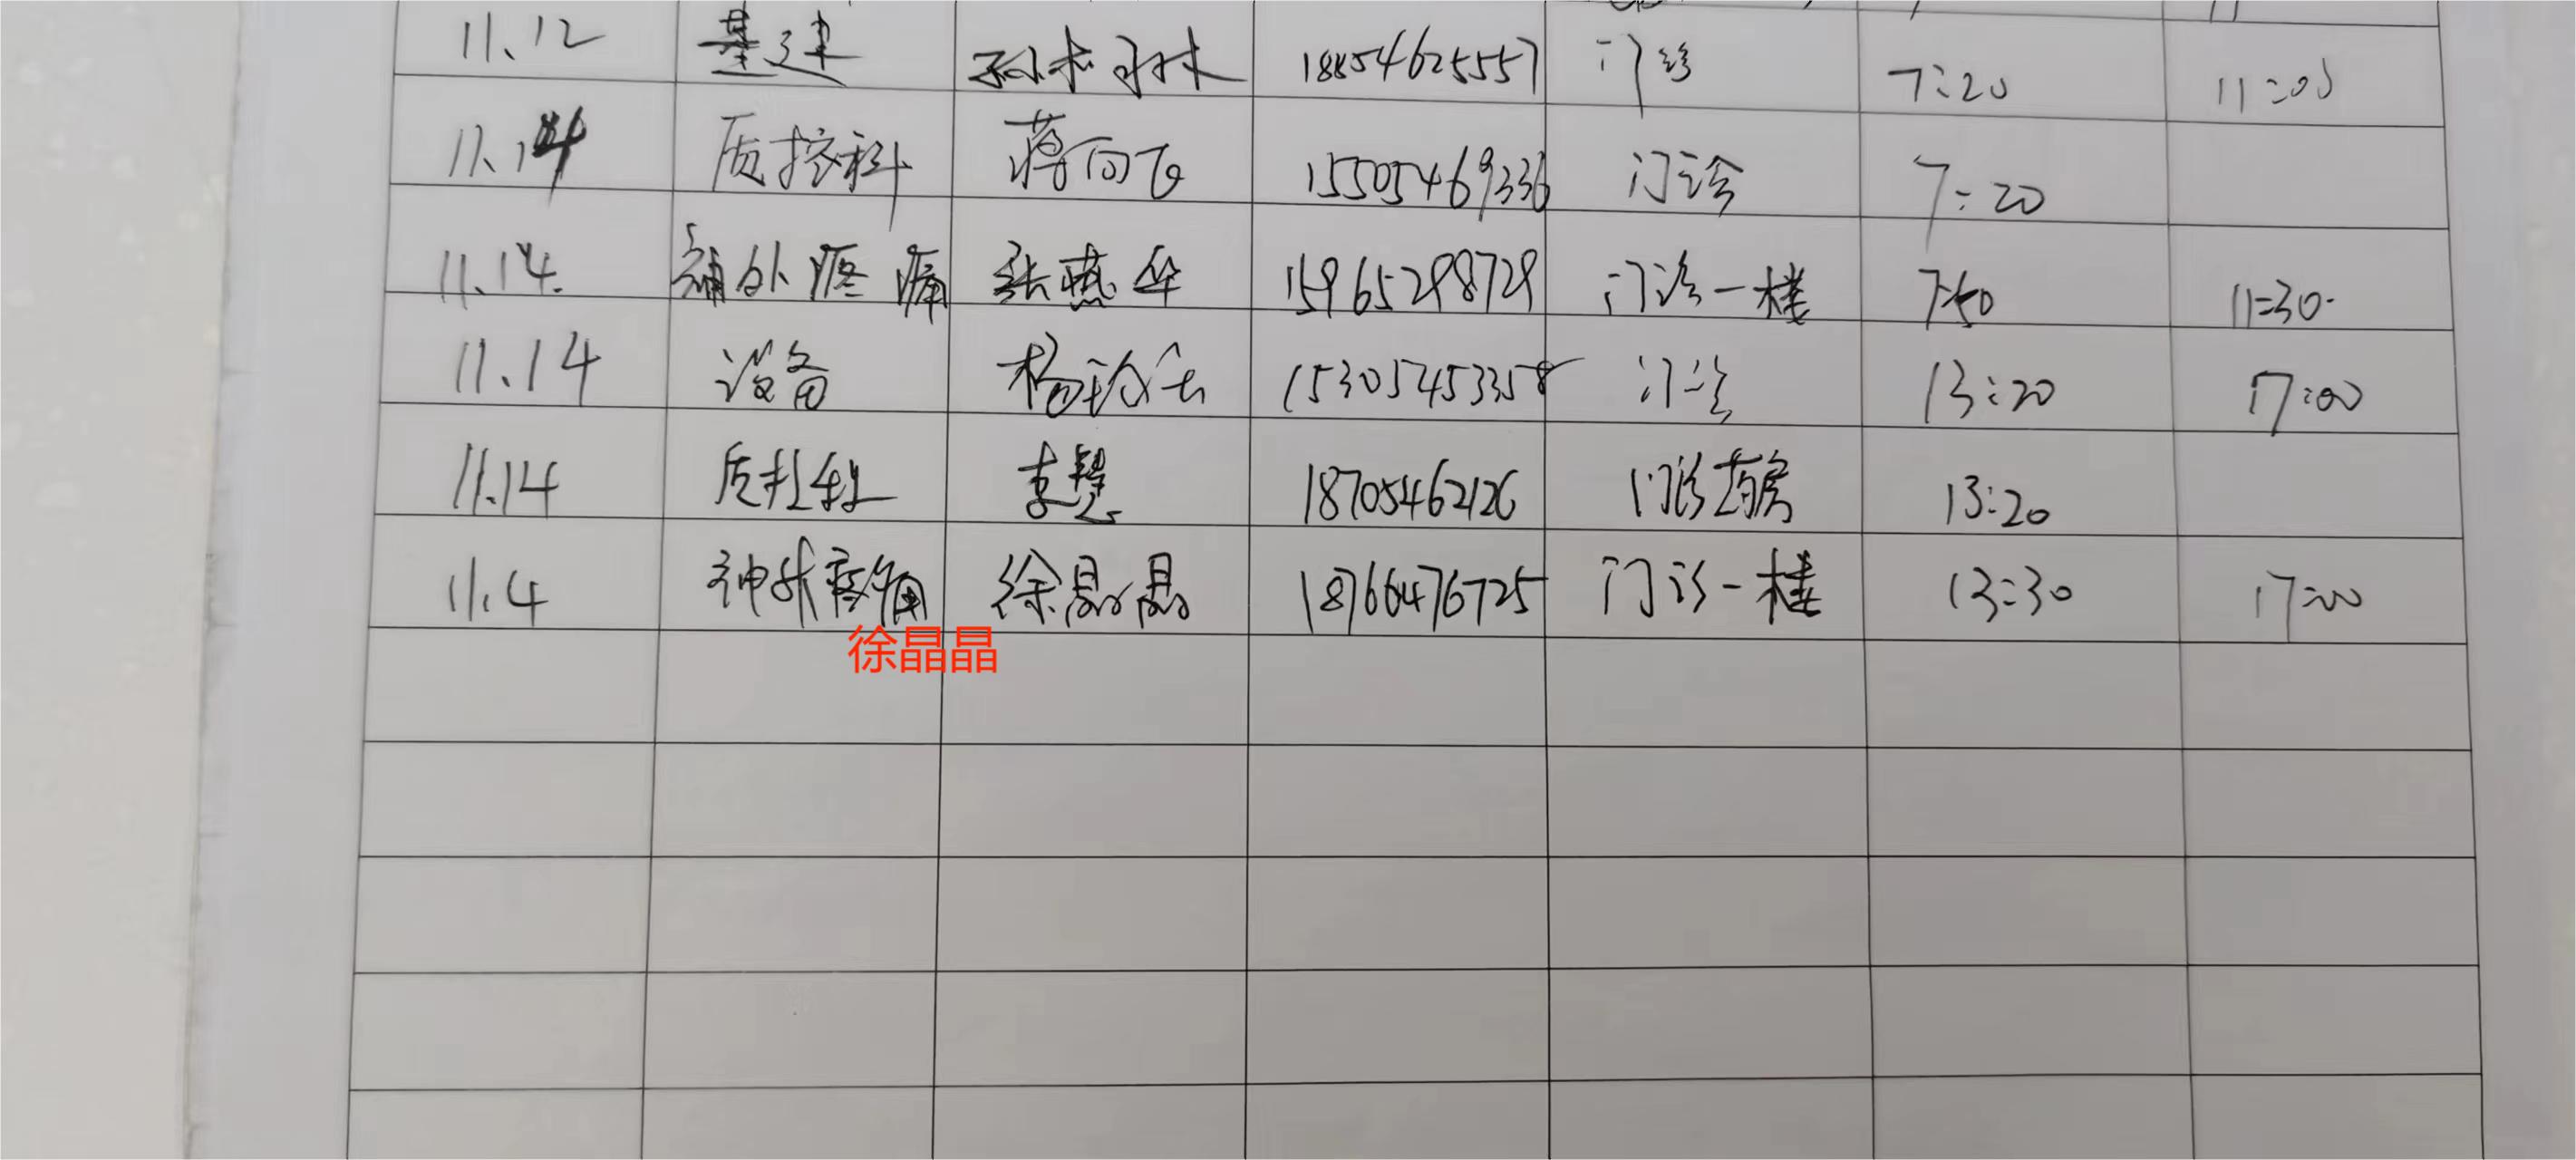 11.12 基建 18854625557 门诊 7:20 11:00
11.14 质控科 蒋向飞 15505469336 门诊 7:20
11.14. 神外疼痛 张燕华 15965298729 门诊一楼 7:50 11:30.
11.14 设备 杨 15305453358 门诊 13:20 17:00
11.14 质控科 李慧 18705462126 门诊药房 13:20
11.4 神外疼痛 徐晶晶 18766476725 门诊一楼 13:30 17:00
徐晶晶